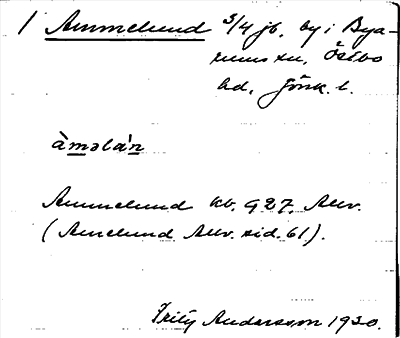 1 Ammelund 3/4 jb. by i Bya-
rums sn, Östbo
hd, Jönk. l.
àmǝlán
Ammelund kb. 927. Allv.
(Amelund Allv. sid. 61).
Fritz Andersson 1930.